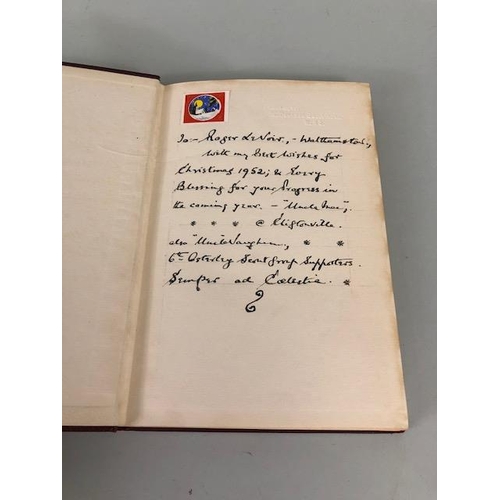 To:- Roger LeVoir, - Walthamstow,
With my Best Wishes for
Christmas 1952; & Every
Blessing for your Progress in
the coming year. - "Uncle
* * * @ Cliftonville.
also "Uncle Vaughan, * *
6th Osterley Scout Group Supporters.
Semper ad Coelestia. *